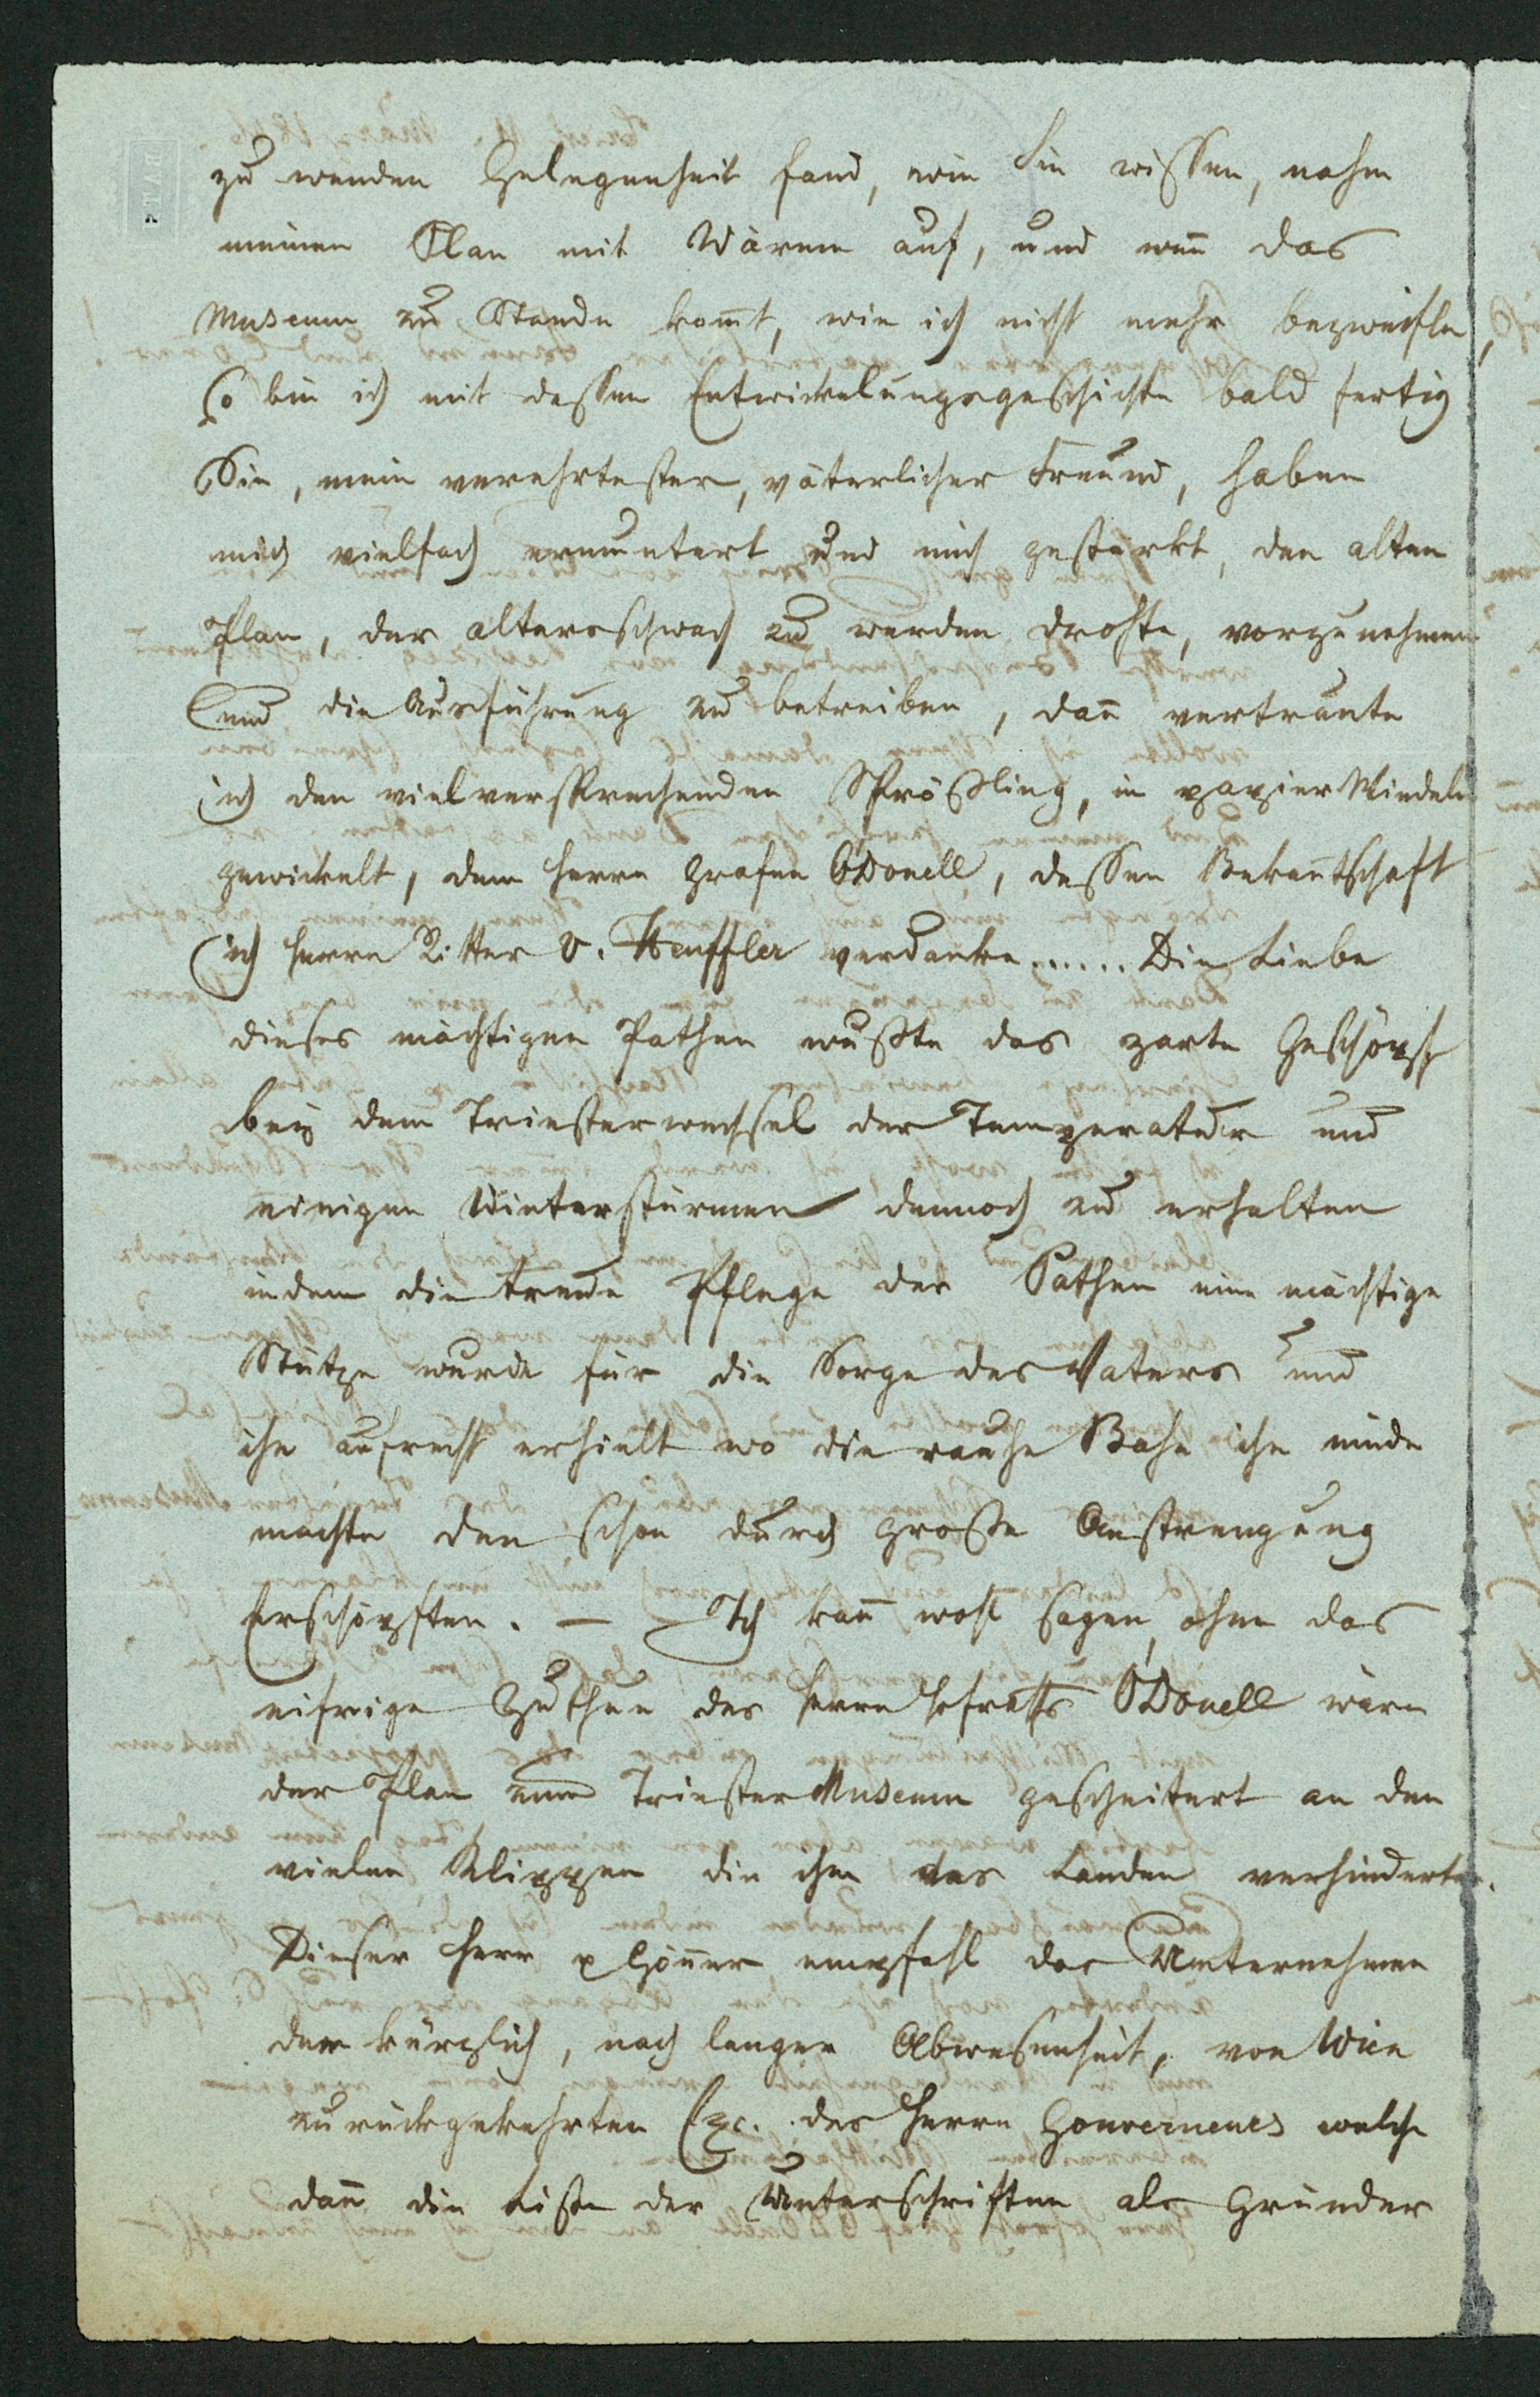 zu wenden Gelegenheit fand, wie Sie wissen, nahm
meinen Plan mit Wärme auf, und weñ das
Museum zu Stande kom̃t, wie ich nicht mehr bezweifle,
so bin ich mit dessen Entwickelungsgeschichte bald fertig
Sie, mein verehrtester, väterlicher Freund, haben
mich vielfach ermuntert und mich gestärkt, den alten
Plan, der altersschwach zu werden drohte, vorzunehmen
und die Ausführung zu betreiben, dañ vertraute
ich den vielversprechenden Sprößling, in papier Windeln
gewickelt, dem Herrn Grafen O'Donell, dessen Bekañtschaft
ich Herrn Ritter v. Heuffler verdanke...... Die Liebe
dieses mächtigen Pathen wußte das zarte Geschöpf
bey dem Triesterwechsel der Temperatur und
einigen Winterstürmen dennoch zu erhalten
indem die treue Pflege des Pathen eine mächtige
Stütze wurde für die Sorge des Vaters und
ihn aufrecht erhielt wo die rauhe Bahn ihn müde
machte den schon durch große Anstrengung
Erschöpften. — Ich kañ wohl sagen, ohne das
eifrige Zuthun des Herrn Hofraths O'Donell wäre
der Plan zum Triester Museum gescheitert an den
vielen Klippen die ihm das Landen verhinderten.
Dieser Herr Göñer empfahl das Unternehmen
dem kürzlich, nach langer Abwesenheit, von Wien
zurückgekehrten Exc. des Herrn Gouverneurs welche
dañ die Liste der Unterschriften als Gründer